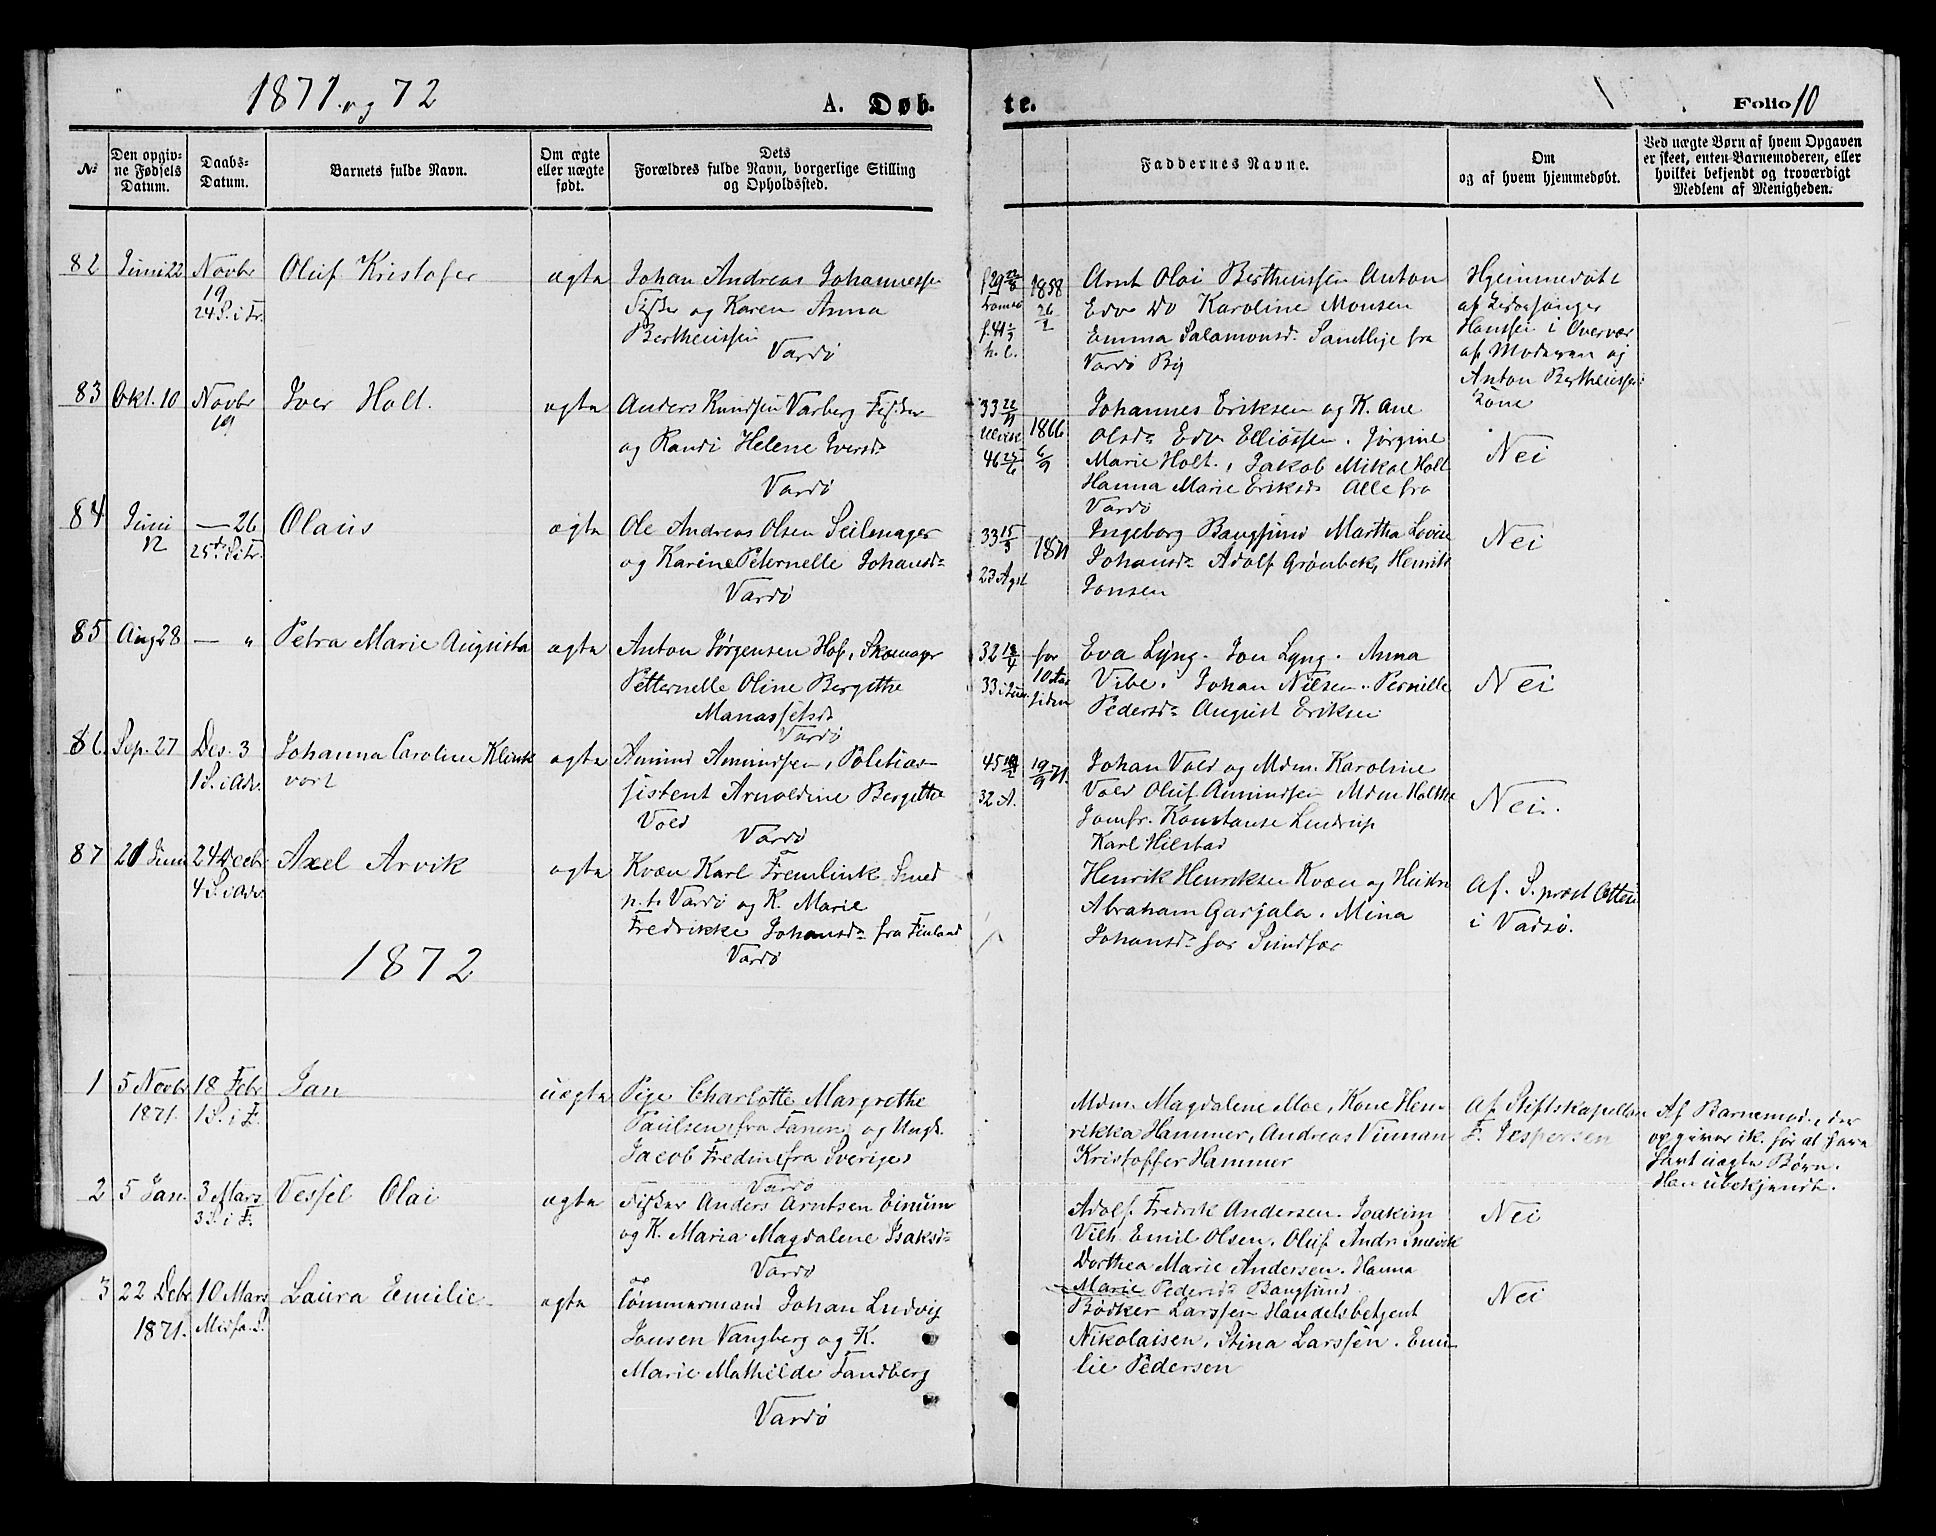 1871 og 72
A. Døb-
te.
Folio 10
No
Den opgiv-
ne Fødsels
Datum.
Daabs-
Datum.
Barnets fulde Navn.
Om ægte
eller uægte
født.
Dets
Forældres fulde Navn, borgerlige Stilling
og Opholdssted.
Faddernes Navne.
Om
og af hvem hjemmedøbt.
Ved uægte Børn af hvem Opgaven
er skeet, enten Barnemoderen, eller
hvilket bekjendt og troværdigt
Medlem af Menigheden.
82 Juni 22 Novbr
19
24 S. i Tr.
Oluf Kristofer
ægte
Johan Andreas Johannessen
Fisker og Karen Anna
Bertheussen
Vardø
1858
26
Arnt Olai Bertheussen Anton
Edv Do Karoline Monsen
Emma Salamonsd. Samtlige fra
Vardø By
Hjemmedøbt
af
Hanssen i Overvær
af Moderen og
Anton Bertheussens
Kone
83 Okt. 10 Novbr
19
Iver Holt.
ægte
Anders Knudsen Varberg Fisker
og Randi Helene Iversd.
Vardø
33
46 25/6
1866
6/9
Johannes Eriksen og K. Ane
Olsd. Edv Elliassen. Jørgine
Marie Holt., Jakob Mikal Holt
Hanna Marie Eriksd. Alle fra
Vardø
Nei
84 Juni
12
— 26
25de S. i Tr.
Olaus
ægte
Ole Andreas Olsen Seilmager
og Karine Peternelle Johansd.
Vardø
33 15/3
23 Agst
1871
Ingeborg Bangsund Martha Lovise
Johansd. Adolf Grønbek, Henrik
Jonsen
Nei
85 Aug 28 — "
Petra Marie Augusta
ægte
Anton Jørgensen Hof, Skomager
Petternelle Oline Bergithe
Manassesd.
Vardø
32
33
for
10 Aar
siden
Eva Lyng. Jon Lyng. Anna
Vibe. Johan Nilsen. Pernille
Pedersd. August Eriksen
Nei
86 Sep. 27 Des. 3
1 S. i Adv.
Johanna Caroline Klink
vort
ægte
Amund Amundsen, Politias-
sistent Arnoldine Bergitte
Vold
Vardø
45
32 A.
19/9 71.
Johan Vold og Mdm. Karoline
Vold Oluf Amundsen Mdm Holthe
Jomfr. Konstanse Lindrup
Karl Hilstad
Nei.
87 21 Juni 24 Decbr
4 S. i Adv.
Axel Arvik
ægte
Kvæn Karl Fremlink Smed
n.t. Vardø og K. Marie
Fredrikke Johansd. fra Finland
Vardø
Henrik Henriksen Kvæn og Hustru
Abraham Garjala. Mina
Johansd. for Sundfær
Af. S. præst Otter
i Vadsø.
1872
1 5 Novbr
1871.
18 Febr
1 S. i F.
Jan
uægte
Pige Charlotte Margrethe
Paulsen fra Tanen og Ungk.
Jacob Fredin fra Sverige
Vardø
Mdm. Magdalene Moe, Kone Hen-
rikka Hammer, Andreas Vinnan
Kristoffer Hammer
Af Stiftskapellan
F. Jespersen
Af Barnemod., der
opgiver ik. før at have
havt uægte Børn.
Han ubekjendt.
2 5 Jan. 3 Mars
3 S. i F.
Vessel Olai
ægte
Fisker Anders Arntsen Einum
og K. Maria Magdalene Isaksd.
Vardø
Adolf Fredrik Andersen. Joakim
Vilh. Emil Olsen. Oluf Andr. Smevik
Dorthea Marie Andersen. Hanna
Marie Pedersd. Bangsund.
Nei
3 22 Debr
1871.
10 Mars
Midfa. S.
Laura Emilie
ægte
Tømmermand Johan Ludvig
Jonsen Vangberg og K.
Marie Mathilde Sandberg
Vardø
Bødker Larssen Handelsbetjent
Nikolaisen, Stina Larssen. Emi-
lie Pedersen
Nei